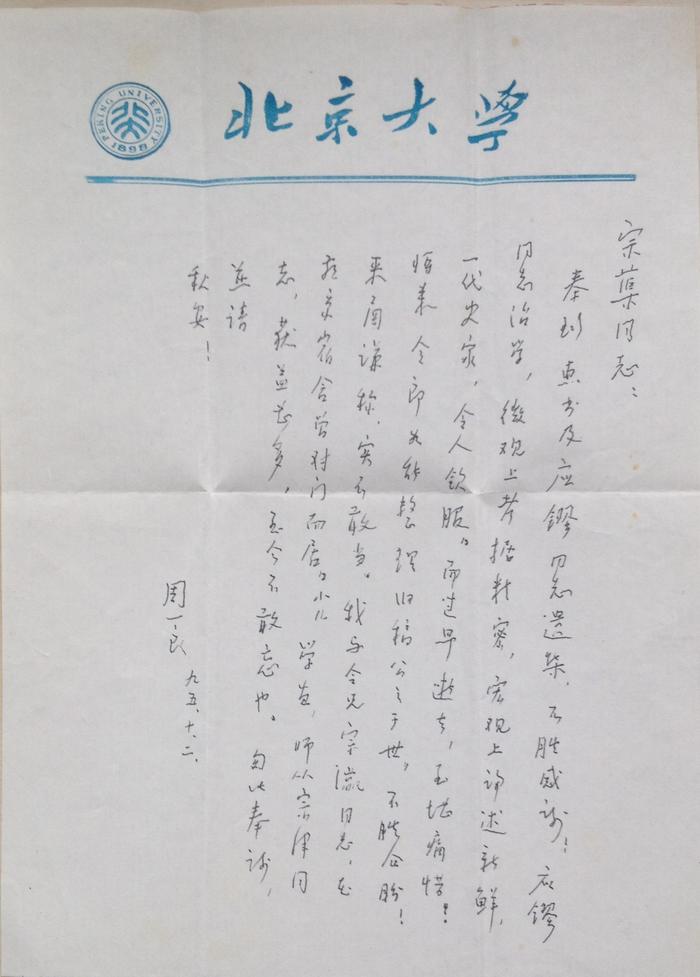 PEKING UNIVERSITY
1898
北京大学
宗蕖同志：
奉到惠书及应镠同志遗集，不胜感谢！应镠
同志治学，微观上考据精密，宏观上论述新鲜，
一代史家，令人钦服。而过早逝去，至堪痛惜！
令郎为能整理旧稿公之于世，不胜企盼！
来函谦称，实不敢当。我与令兄宗瀛同志，在
燕京宿舍曾对门而居。小儿学良，师从宗津同
志，获益甚多，至今不敢忘也。匆此奉谢，
并请
秋安！
周一良 九五、十、二、